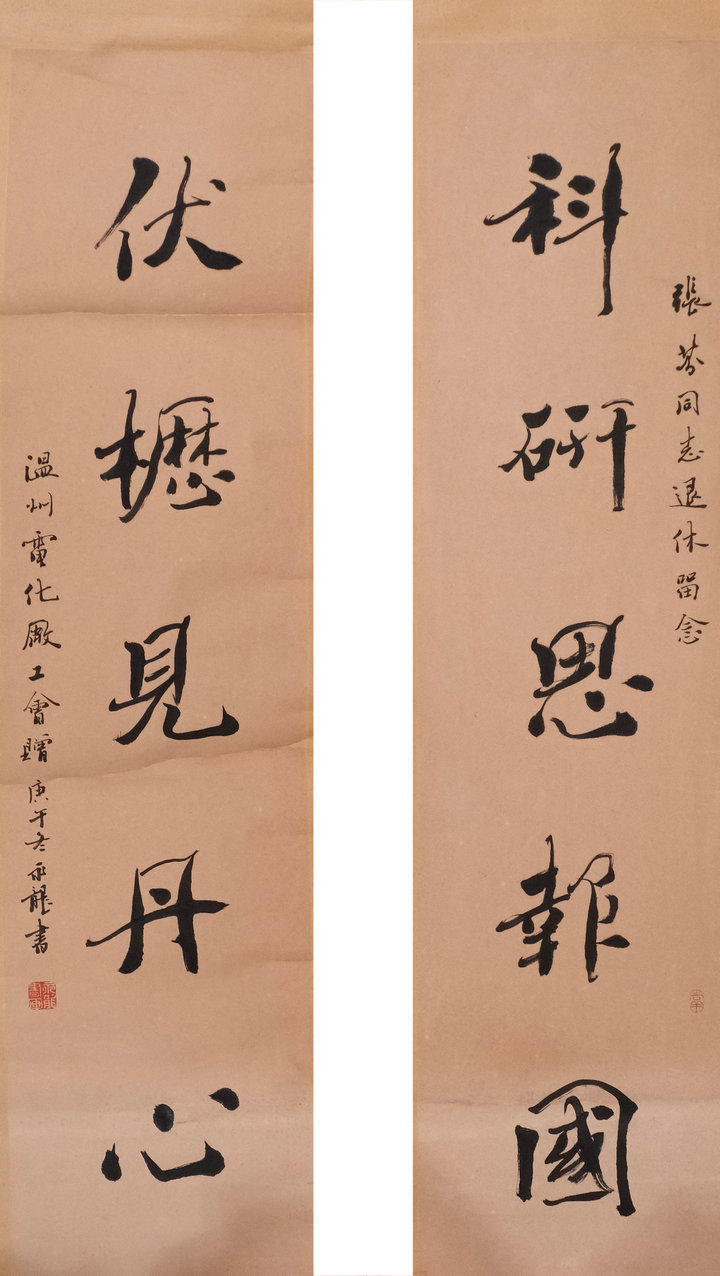 張芬同志退休留念
科研思報國
伏櫪見丹心
溫州電化廠工會贈 庚午冬永龍書